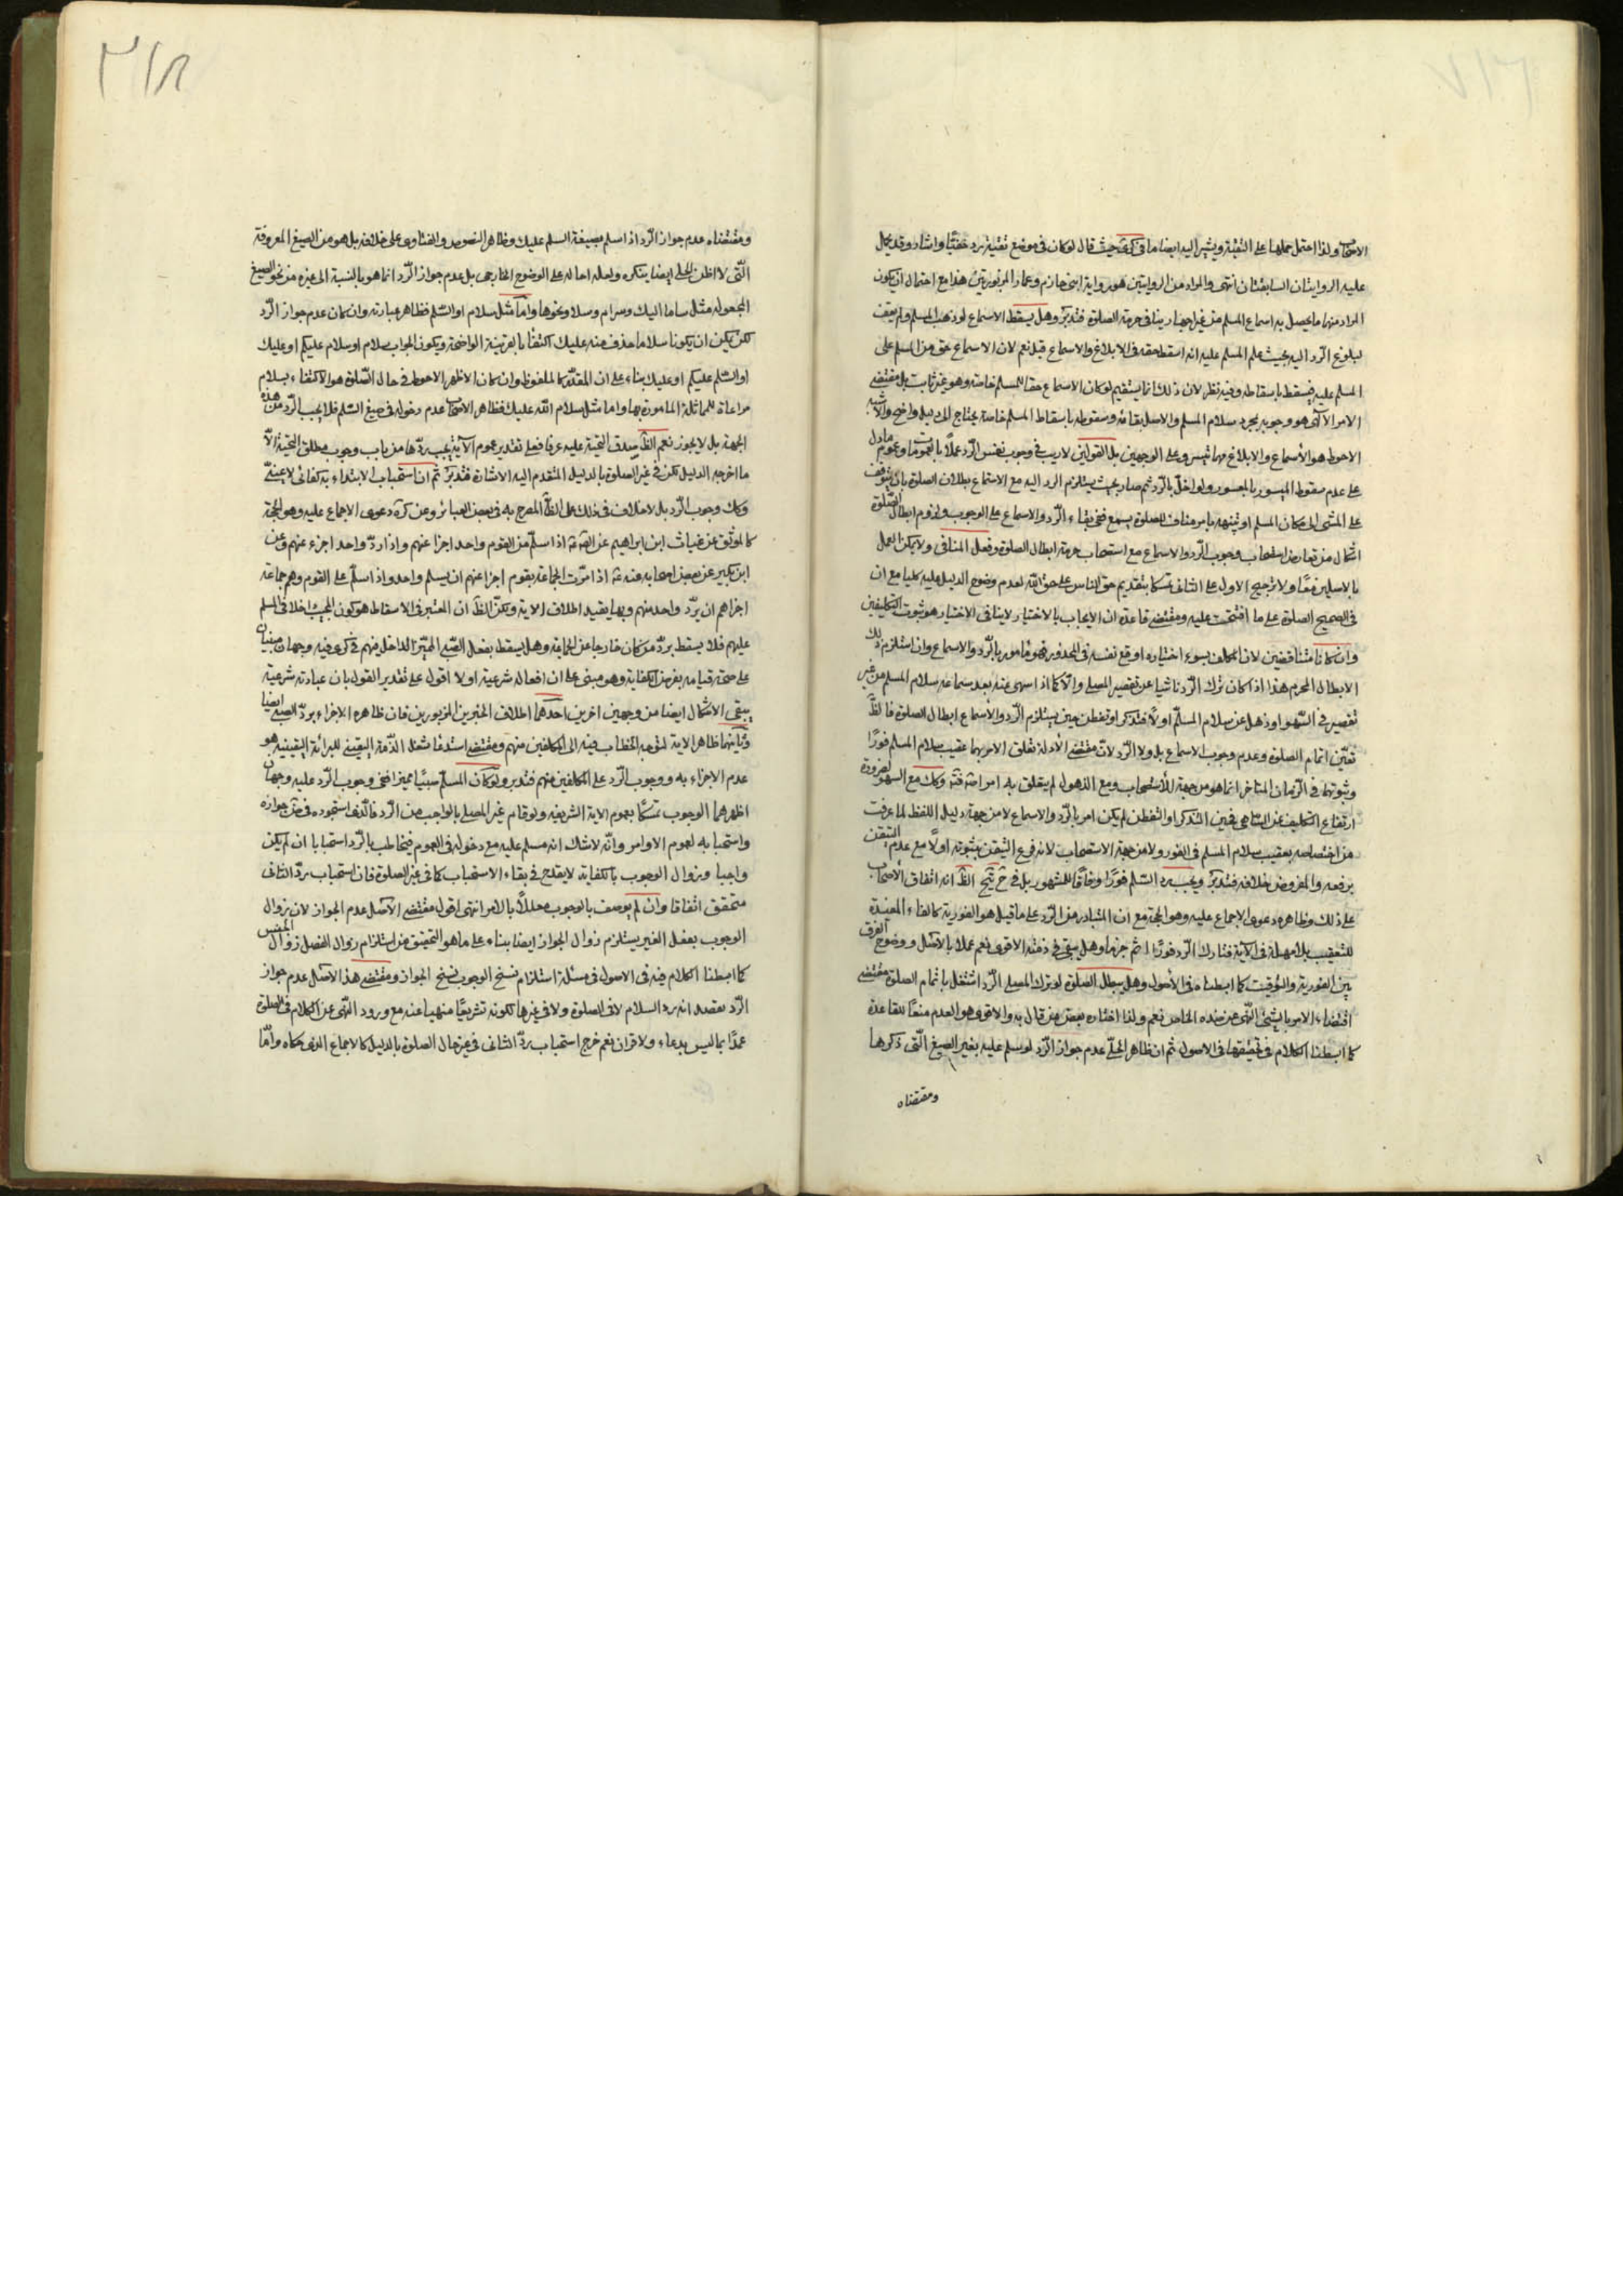 الاصحاب ولذا احتمل حملها على التقية ويشير اليه ايضا ما في كرى حيث قال لو كان في موضع تقية يرد خفيّا واشار وقد يحمل
عليه الروايتان السابقتان انتهى والمراد من الروايتين هو رواية ابن حازم وعمار المزبورتين هذا مع احتمال ان يكون
المراد منهما ما يحصل به اسماع المسلم من غير اجهار ينافي حرمة الصلوة فتدبّر وهل يسقط الاسماع لو ذهب المسلم ولم يقف
لبلوغ الرّد اليه بحيث علم المسلم عليه انه اسقط حقه في الابلاغ والاسماع قيل نعم لان الاسماع حق من المسلم على
المسلم عليه فيسقط باسقاطه وفيه نظر لان ذلك انما يستقيم لو كان الاسماع حقا للمسلم خاصة وهو غير ثابت بل مقتضى
الامر الآتي هو وجوبه بمجرد سلام المسلم والاصل بقائه وسقوطه باسقاط المسلم خاصة يحتاج الى دليل واضح والاشبه
الاحوط هو الأسماع والابلاغ مهما تيسر وعلى الوجهين بل القولين لا ريب في وجوب نفس الرّد عملًا بالعمومات وعموم ما دل
على عدم سقوط الميسور بالمعسور ولو اخلّ بالرّد ثم صار بحيث يستلزم الرد اليه مع الاستماع بطلان الصلوة بان يتوقف
على المشى الى مكان المسلم او تنبيهه بامر مناف للصلوة يسمع ففي بقاء الرّد والاسماع على الوجوب ولزوم ابطال الصّلوة
اشكال من تعارض استصحاب وجوب الرّد والاسماع مع استصحاب حرمة ابطال الصلوة وفعل المنافى ولا يمكن العمل
بالاصلين معًا ولا ترجيح الاول على الثانى تمسكا بتقديم حق الناس على حق اللّه لعدم وضوح الدليل عليه كليا مع ان
في الصحيح الصلوة على ما افتتحت عليه ومقتضى قاعدة ان الايجاب بالاختيار لا ينافى الاختيار هو ثبوت التكليفين
وان كانا متناقضين لان المكلف بسوء اختياره اوقع نفسه في المحذور فهو مأمور بالرّد والاسماع وان استلزم ذلك
الابطال المحرم هذا اذا كان ترك الرّد ناشيا عن تقصير المصلى والّا كما اذا سهى عنه بعد سماعه سلام المسلم من غير
تقصير في السّهو او ذهل عن سلام المسلّم اولًا فتذكر او تفطن حين يستلزم الرّد والأسماع ابطال الصلوة فالظّ
تعيّن اتمام الصلوة وعدم وجوب الاسماع بل ولا الرّد لانّ مقتضى الأدلة تعلق الامر بهما عقيب سلام المسلم فورًا
وثبوتها في الزّمان المتاخر انما هو من جهة الأستصحاب ومع الذهول لم يتعلق به امر اصلا وكك مع السهو لضرورة
ارتفاع التكليف عن السّاهي فحين التذكر او التفطن لم يكن امر بالرّد والاسماع لا من جهة دليل اللفظ لما عرفت
من اختصاصه بعقيب سلام المسلم في الفور ولا من جهة الاستصحاب لانه فرع التيقن بثبوته اولًا مع عدم التيقن
برفعه والمفروض خلافه فتدبّر ويجب رد السّلم فورًا وفاقًا للمشهور بل في ح تيح الظّ انه اتفاق الأصحاب
على ذلك وظاهره دعوى الاجماع عليه وهو الحجة مع ان المتبادر من الرّد على ما قيل هو الفورية كالفاء المفيدة
للتعقيب بلا مهلة في الآية فتارك الرّد فورًا اثم جزما وهل يبقى في ذمّته الاقوى نعم عملا بالأصل ووضوح الفرق
بين الفورية والتوقيت كما ابسطناه في الأصول وهل يبطل الصّلوة لو ترك المصلى الرّد اشتغل باتمام الصلوة مقتضى
اقتضاء الامر بالشئ النّهي عن ضده الخاص نعم ولذا اختاره بعض من قال به والاقوى هو العدم منعًا للقاعدة
كما ابسطنا الكلام في تحقيقها في الاصول ثم ان ظاهر المحلّى عدم جواز الرّد لو سلم عليه بغير الصيغ الّتى ذكرها
ومقتضاه
٣١٨
ومقتضاه عدم جواز الرّد اذا سلم بصيغة السلم عليك وظاهر النصوص والفتاوى على خلافه بل هو من الصيغ المعروفة
الّتى لا اظن الحلى ايضا ينكره ولعله احاله على الوضوح الخارجي بل عدم جواز الرّد انما هو بالنسبة الى غيره من نحو الصيغ
المجعولة مثل ساما اليك وسرام وسلا ونحوها وامّا مثل سلام او السّلم فظاهر عبارته وان كان عدم جواز الرّد
لكن يمكن ان يكونا سلاما حذف منه عليك اكتفا بالقرينة الواضحة ويكون الجواب سلام او سلام عليكم او عليك
او السّلم عليكم او عليك بناء على ان المقدّر كالملفوظ وان كان الاظهر الاحوط في حال الصّلوة هو الاكتفاء بسلام
مراعاة للمماثلة المامورة بها واما مثل سلام اللّه عليك فظاهر الاصحاب عدم دخوله في صيغ السّلم فلا يجب الرّد من هذه
الجهة بل لا يجوز نعم الظّ صدق التحية عليه عرفا فعلى تقدير عموم الآية يجب ردّها من باب وجوب مطلق التحية الّا
ما اخرجه الدليل لكن في غير الصلوة بالدليل المتقدم اليه الاشارة فتدبّر ثم ان استحباب الابتداء به كفائى لا عينىّ
وكك وجوب الرّد بلا خلاف في ذلك على الظّ المصرح به في بعض العبائر وعن كرة دعوى الاجماع عليه وهو الحجة
كالموثق عن غياث ابن ابراهيم عن الصّ عه اذا سلّم من القوم واحد اجزا عنهم واذا ردّ واحد اجزء عنهم وعن
ابن بكير عن بعض اصحابه عنه عه اذا مرّت الجماعة بقوم اجزا عنهم ان يسلم واحد واذا سلّم على القوم وهم جماعة
اجزاهم ان يردّ واحد منهم وبها يقيد اطلاق الاية ولكنّ الظّ ان المعتبر في الاسقاط هو كون المجيب داخلا في المسلم
عليهم فلا يسقط بردّ من كان خارجا عن الجماعة وهل يسقط بفعل الصّبي المميّز الداخل منهم في كرى فيه وجهان مبنيان
على صحة قيامه بفرض الكفاية وهو مبنى على ان افعاله شرعية او لا اقول على تقدير القول بان عبادته شرعية
يبقى الاشكال ايضا من وجهين اخرين احدهما اطلاق الخبرين المزبورين فان ظاهره الاجزاء بردّ الصبى ايضا
وثانيهما ظاهر الاية لتوجه الخطاب فيه الى المكلفين منهم ومقتضى استدعا شغل الذّمة اليقينى للبرائة اليقينية هو
عدم الاجزاء به ووجوب الرّد على المكلفين منهم فتدبر ولو كان المسلّم صبيًا مميزا ففي وجوب الرّد عليه وجهان
اظهرهما الوجوب تمسّكًا بعموم الاية الشريفة ولو قام غير المصلى بالواجب من الرّد فالّذى استجوده في ض جوازه
واستحبابه لعموم الاوامر وانّه لا شك انه مسلم عليه مع دخوله في العموم فيخاطب بالرّد استحبابا ان لم يكن
واجبا وزوال الوجوب بالكفاية لا يقدح في بقاء الاستحباب كما في غير الصلوة فان استحباب ردّ الثانى
متحقق اتفاقا وان لم يوصف بالوجوب معللًا بالامر انتهى اقول مقتضى الأصل عدم الجواز لان زوال
الوجوب بفعل الغير يستلزم زوال الجواز ايضا بناء على ما هو التحقيق من استلزام زوال الفصل زوال الجنس
كما ابسطنا الكلام فيه في الاصول في مسئلة استلزام نسخ الوجوب نسخ الجواز ومقتضى هذا الأصل عدم جواز
الرّد بقصد انه رد السلام لا في الصلوة ولا في غيرها لكونه تشريعًا منهيا عنه مع ورود النّهى عن الكلام في الصلوة
عمدًا بما ليس بدعاء ولا قران نعم خرج استحباب ردّ الثانى في غير حال الصلوة بالدليل كالاجماع الذى حكاه وامّا